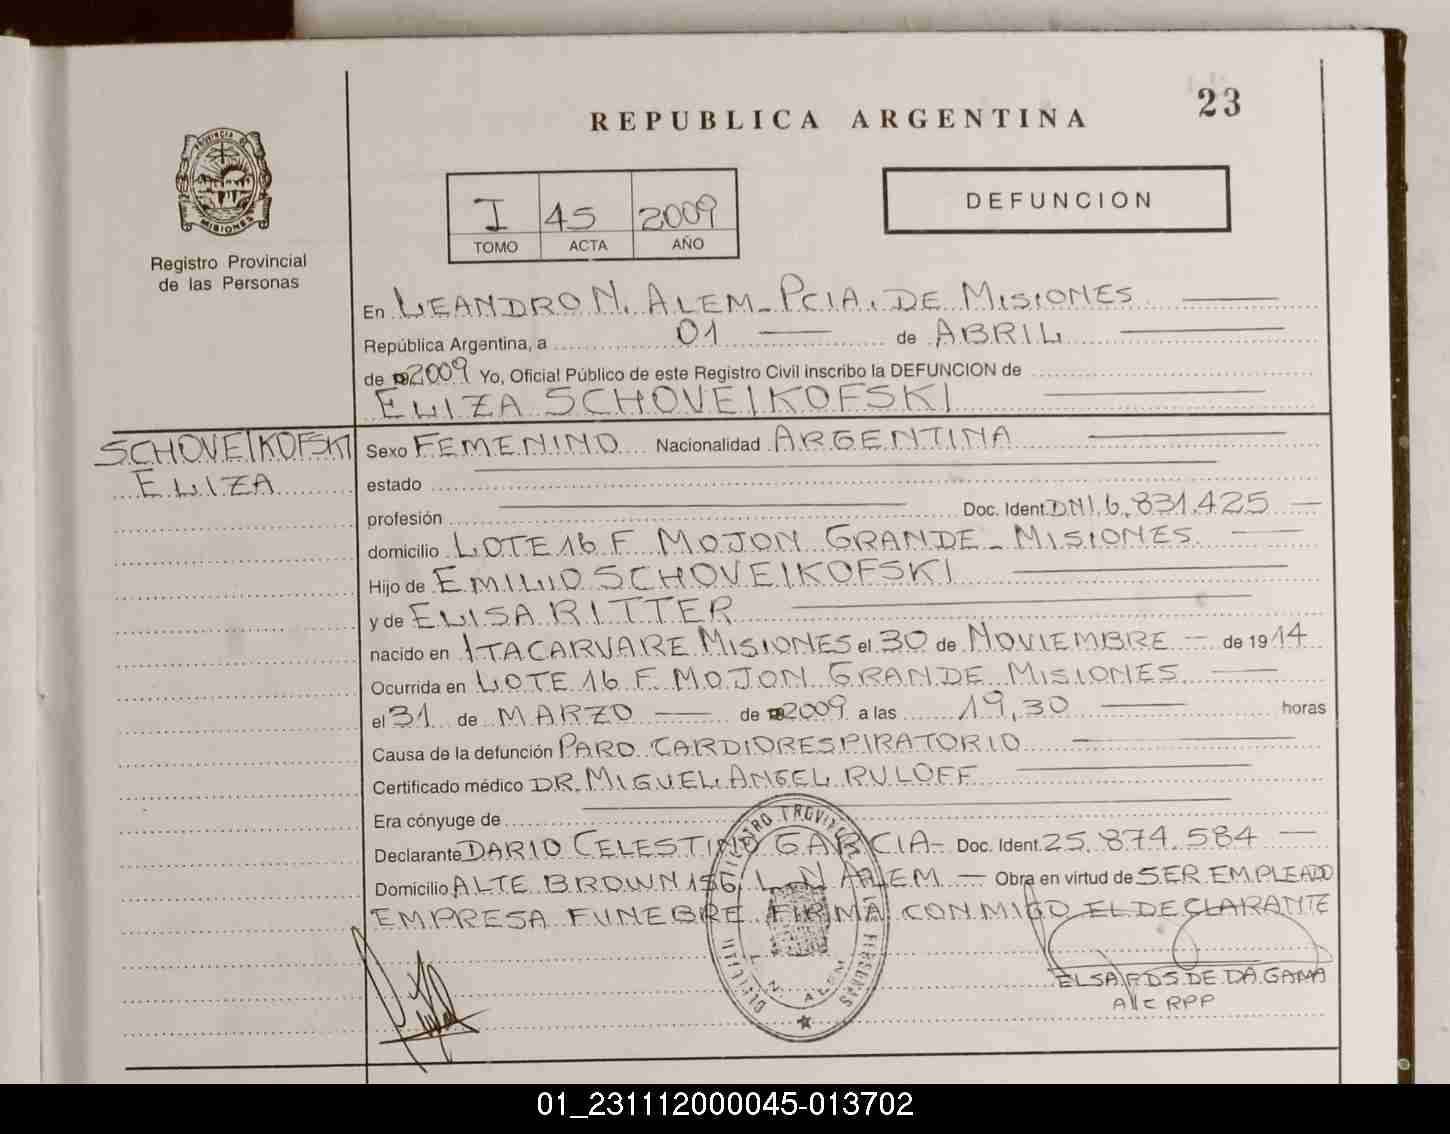 REPUBLICA ARGENTINA
23
PROVINCIA DE
MISIONES
Registro Provincial
de las Personas
I 45 2009
TOMO ACTA AÑO
DEFUNCION
En LEANDRO N. ALEM - PCIA. DE MISIONES
República Argentina, a 01 de ABRIL
de 2009 Yo, Oficial Público de este Registro Civil inscribo la DEFUNCION de
ELIZA SCHOVEIKOFSKI
SCHOVEIKOFSKI
ELIZA
Sexo FEMENINO Nacionalidad ARGENTINA
estado
profesión Doc. Ident. DNI 6.831.425
domicilio LOTE 16 F MOJON GRANDE - MISIONES
Hijo de EMILIO SCHOVEIKOFSKI
y de ELISA RITTER
nacido en ITACARUARE MISIONES el 30 de NOVIEMBRE de 1914
Ocurrida en LOTE 16 F MOJON GRANDE MISIONES
el 31 de MARZO de 2009 a las 19,30 horas
Causa de la defunción PARO CARDIORESPIRATORIO
Certificado médico DR. MIGUEL ANGEL RULOFF
Era cónyuge de
Declarante DARIO CELESTINO GARCIA - Doc. Ident. 25.874.584
Domicilio ALTE BROWN 156 L N ALEM - Obra en virtud de SER EMPLEADO
EMPRESA FUNEBRE FIRMA CONMIGO EL DECLARANTE
L. N. ALEM
DE DA GAMA
RPP
01_231112000045-013702